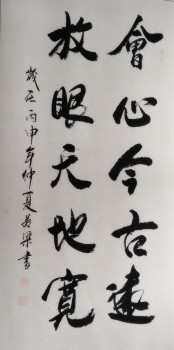 會心今古遠
放眼天地寬
歲在丙申年仲夏書